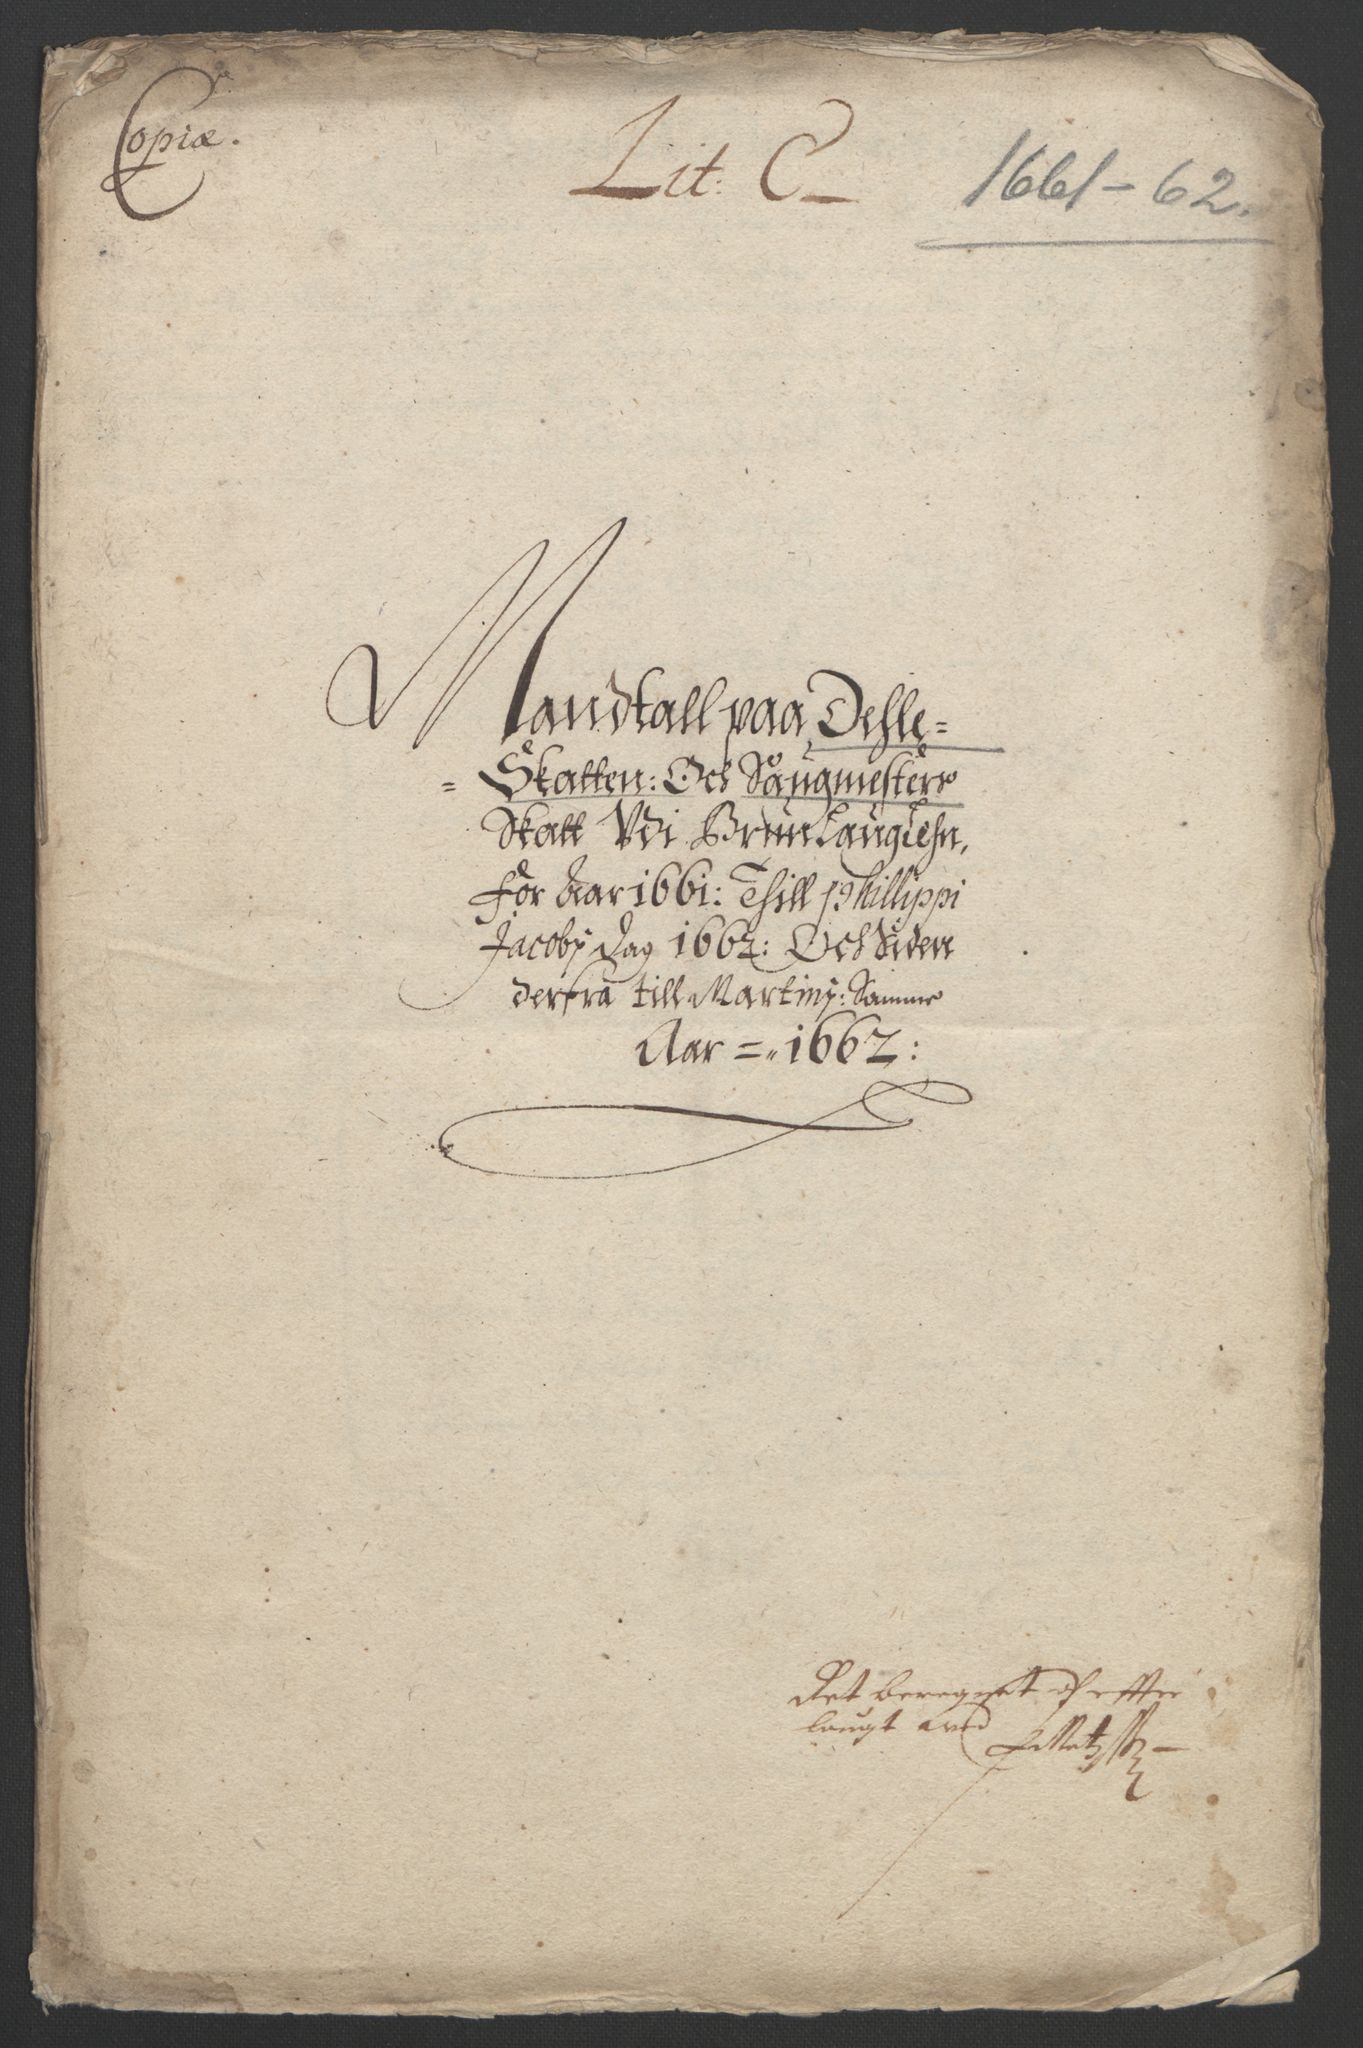 Copiæ.
Lit: C
1661-62.
Mandtall paa Dehle-
= Skatten: Och Saugmesters
Skatt Udi Brunlauglehn,
for Aar 1661: Thill Phillippi
Jacobj dag 1662: Och Siden
derfra till Martinj: Samme
Aar =" 1662:
Det beregnet
laugt